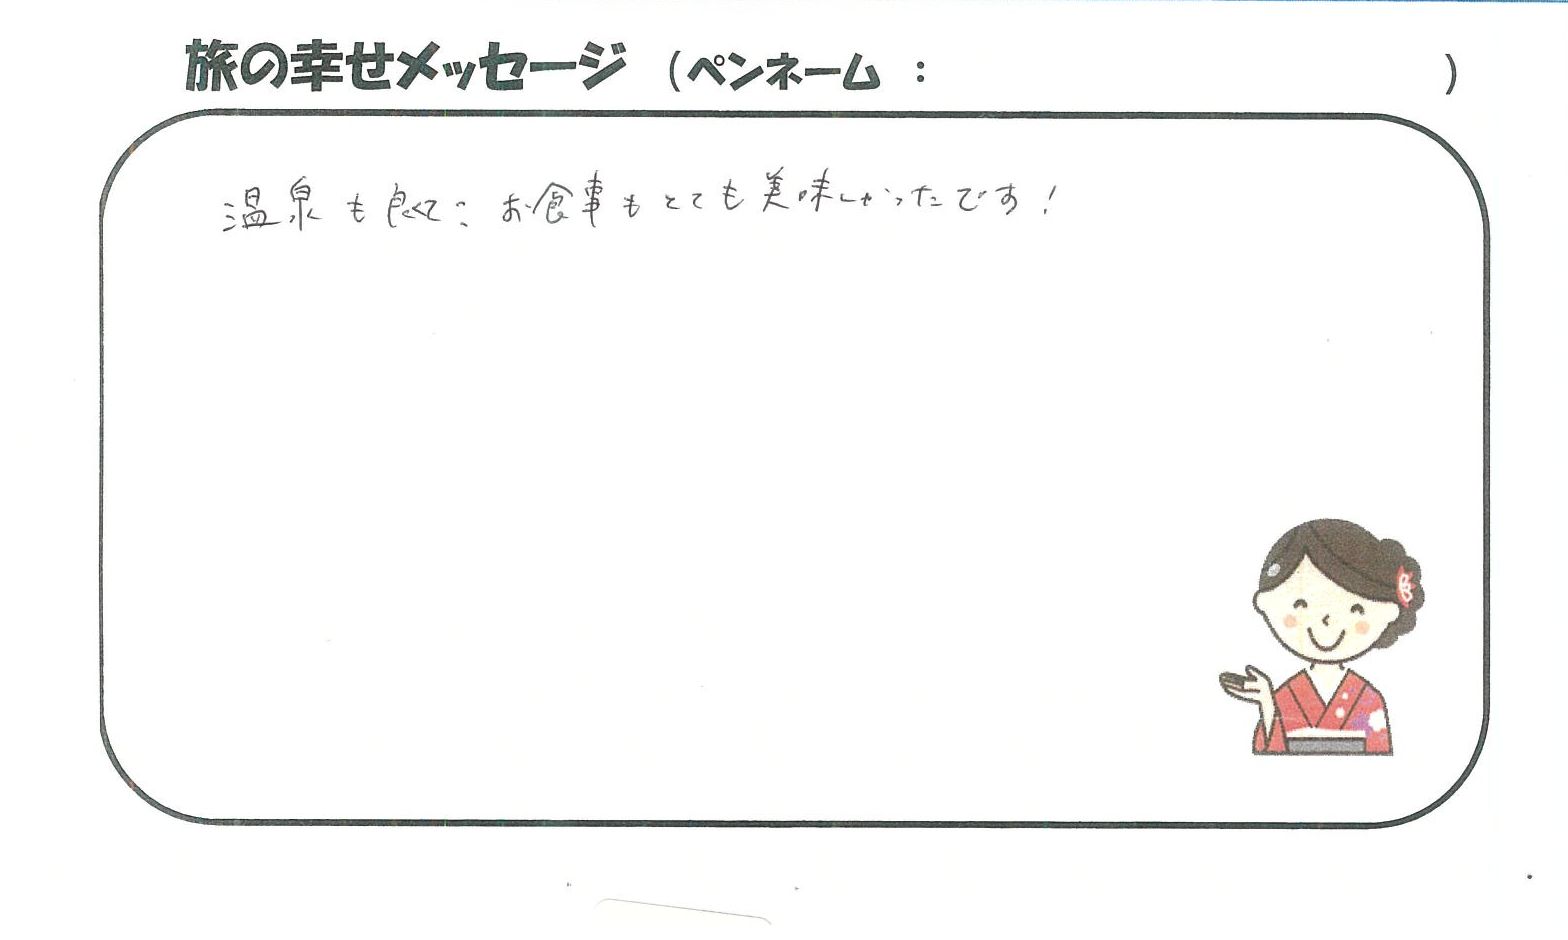 旅の幸せメッセージ (ペンネーム : )
温泉も良くて、お食事もとても美味しかったです!